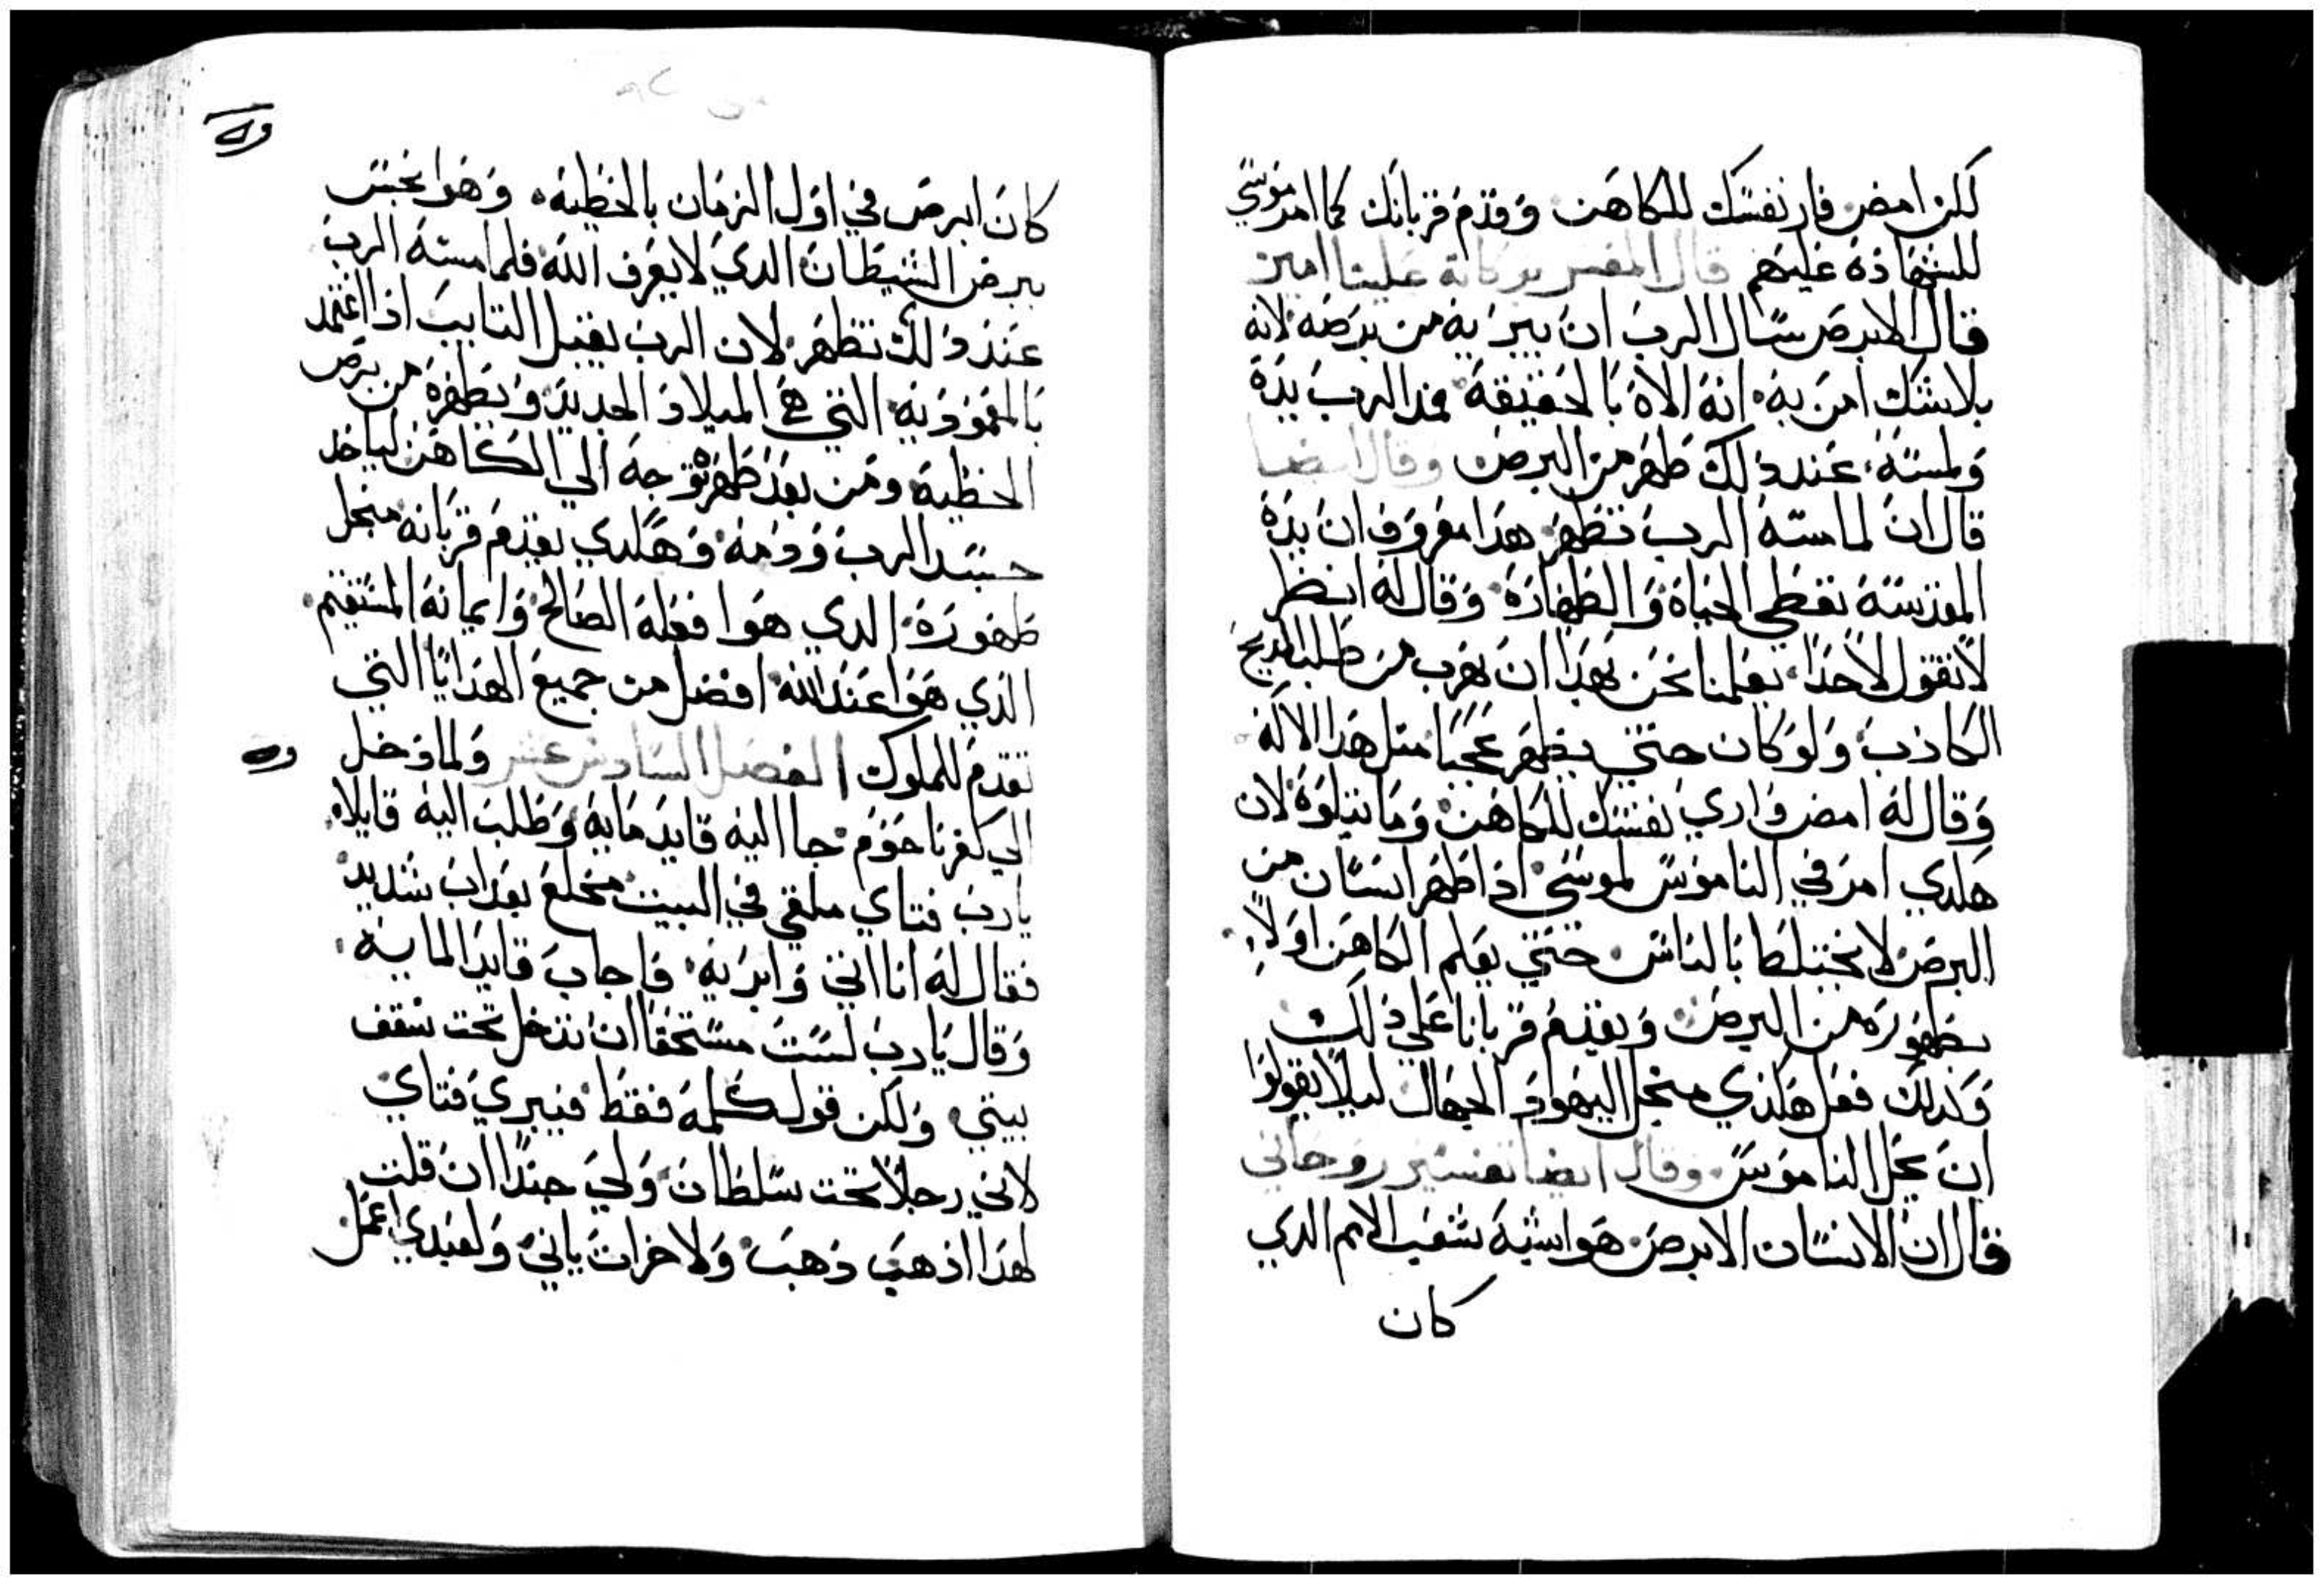 لكن امض فار نفسك للكاهن وقدم قربانك كما امر موسي
للشهاده عليهم قال المفسر بركاته علينا امين
قال الابرص سال الرب ان يبريه من برصه لانه
بلا شك امن به انه الاه بالحقيقة فمد الرب يده
ولمسه عند دلك طهر من البرص وقال ايضا
قال ان لما مسه الرب تطهر هدا معروف ان يده
المقدسه تعطي الحياه والطهاره وقال له انظر
لا تقول لاحدا يعلمنا نحن بهدا ان نهرب من طلب المديح
الكادب ولو كان حتي يظهر عجبا متل هدا الاله
وقال له امض واري نفسك للكاهن وما يتلوه لان
هكدي امر في الناموس لموسي اذا طهر انسان من
البرص لا يختلط بالناس حتي يعلم الكاهن اولا
بطهوره من البرص ويقدم قربانا علي ذلك
وكدلك فعل هكذي منجل اليهود الجهال ليلا يقولوا
ان يحل الناموس وقال ايضا تفسير روحاني
قال ان الانسان الابرص هوا شبه شعب الامم الدي
كان
كان ابرص في اول الزمان بالخطيه وهوا نجس
ببرص الشيطان الدي لا يعرف الله فلما مسه الرب
عند دلك تطهر لان الرب يقبل التايب اذا اعتمد
بالمعموديه التي هي الميلاد الجديد ويطهره من برص
الخطيه ومن بعد طهره توجه الي الكاهن لياخد
جسد الرب ودمه وهكدي يقدم قربانه منجل
طهوره الدي هوا فعله الصالح وايمانه المستقيم
الذي هوا عند الله افضل من جميع الهدايا التي
تقدم للملوك الفصل السادس عشر ولما دخل
الي كفرناحوم جا اليه قايد مايه وطلب اليه قايلا
يارب فتاي ملقي في البيت مخلع بعداب شديد
فقال له انا اتي وابريه فاجاب قايد المايه
وقال يارب لست مستحقا ان تدخل تحت سقف
بيتي ولكن قول كلمه فقط فيبري فتاي
لاني رجلا تحت سلطان ولي جندا ان قلت
لهذا اذهب ذهب ولاخر ات ياتي ولعبدي اعمل